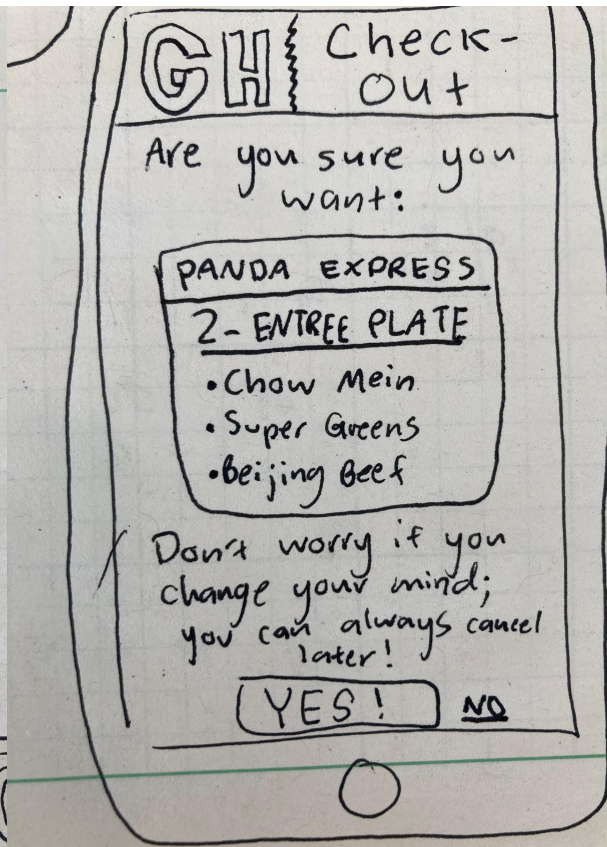 GH Check-
Out
Are you sure you
want:
PANDA EXPRESS
2-ENTREE PLATE
•Chow Mein
•Super Greens
•Beijing Beef
Don't worry if you
change your mind;
you can always cancel
later!
YES! NO